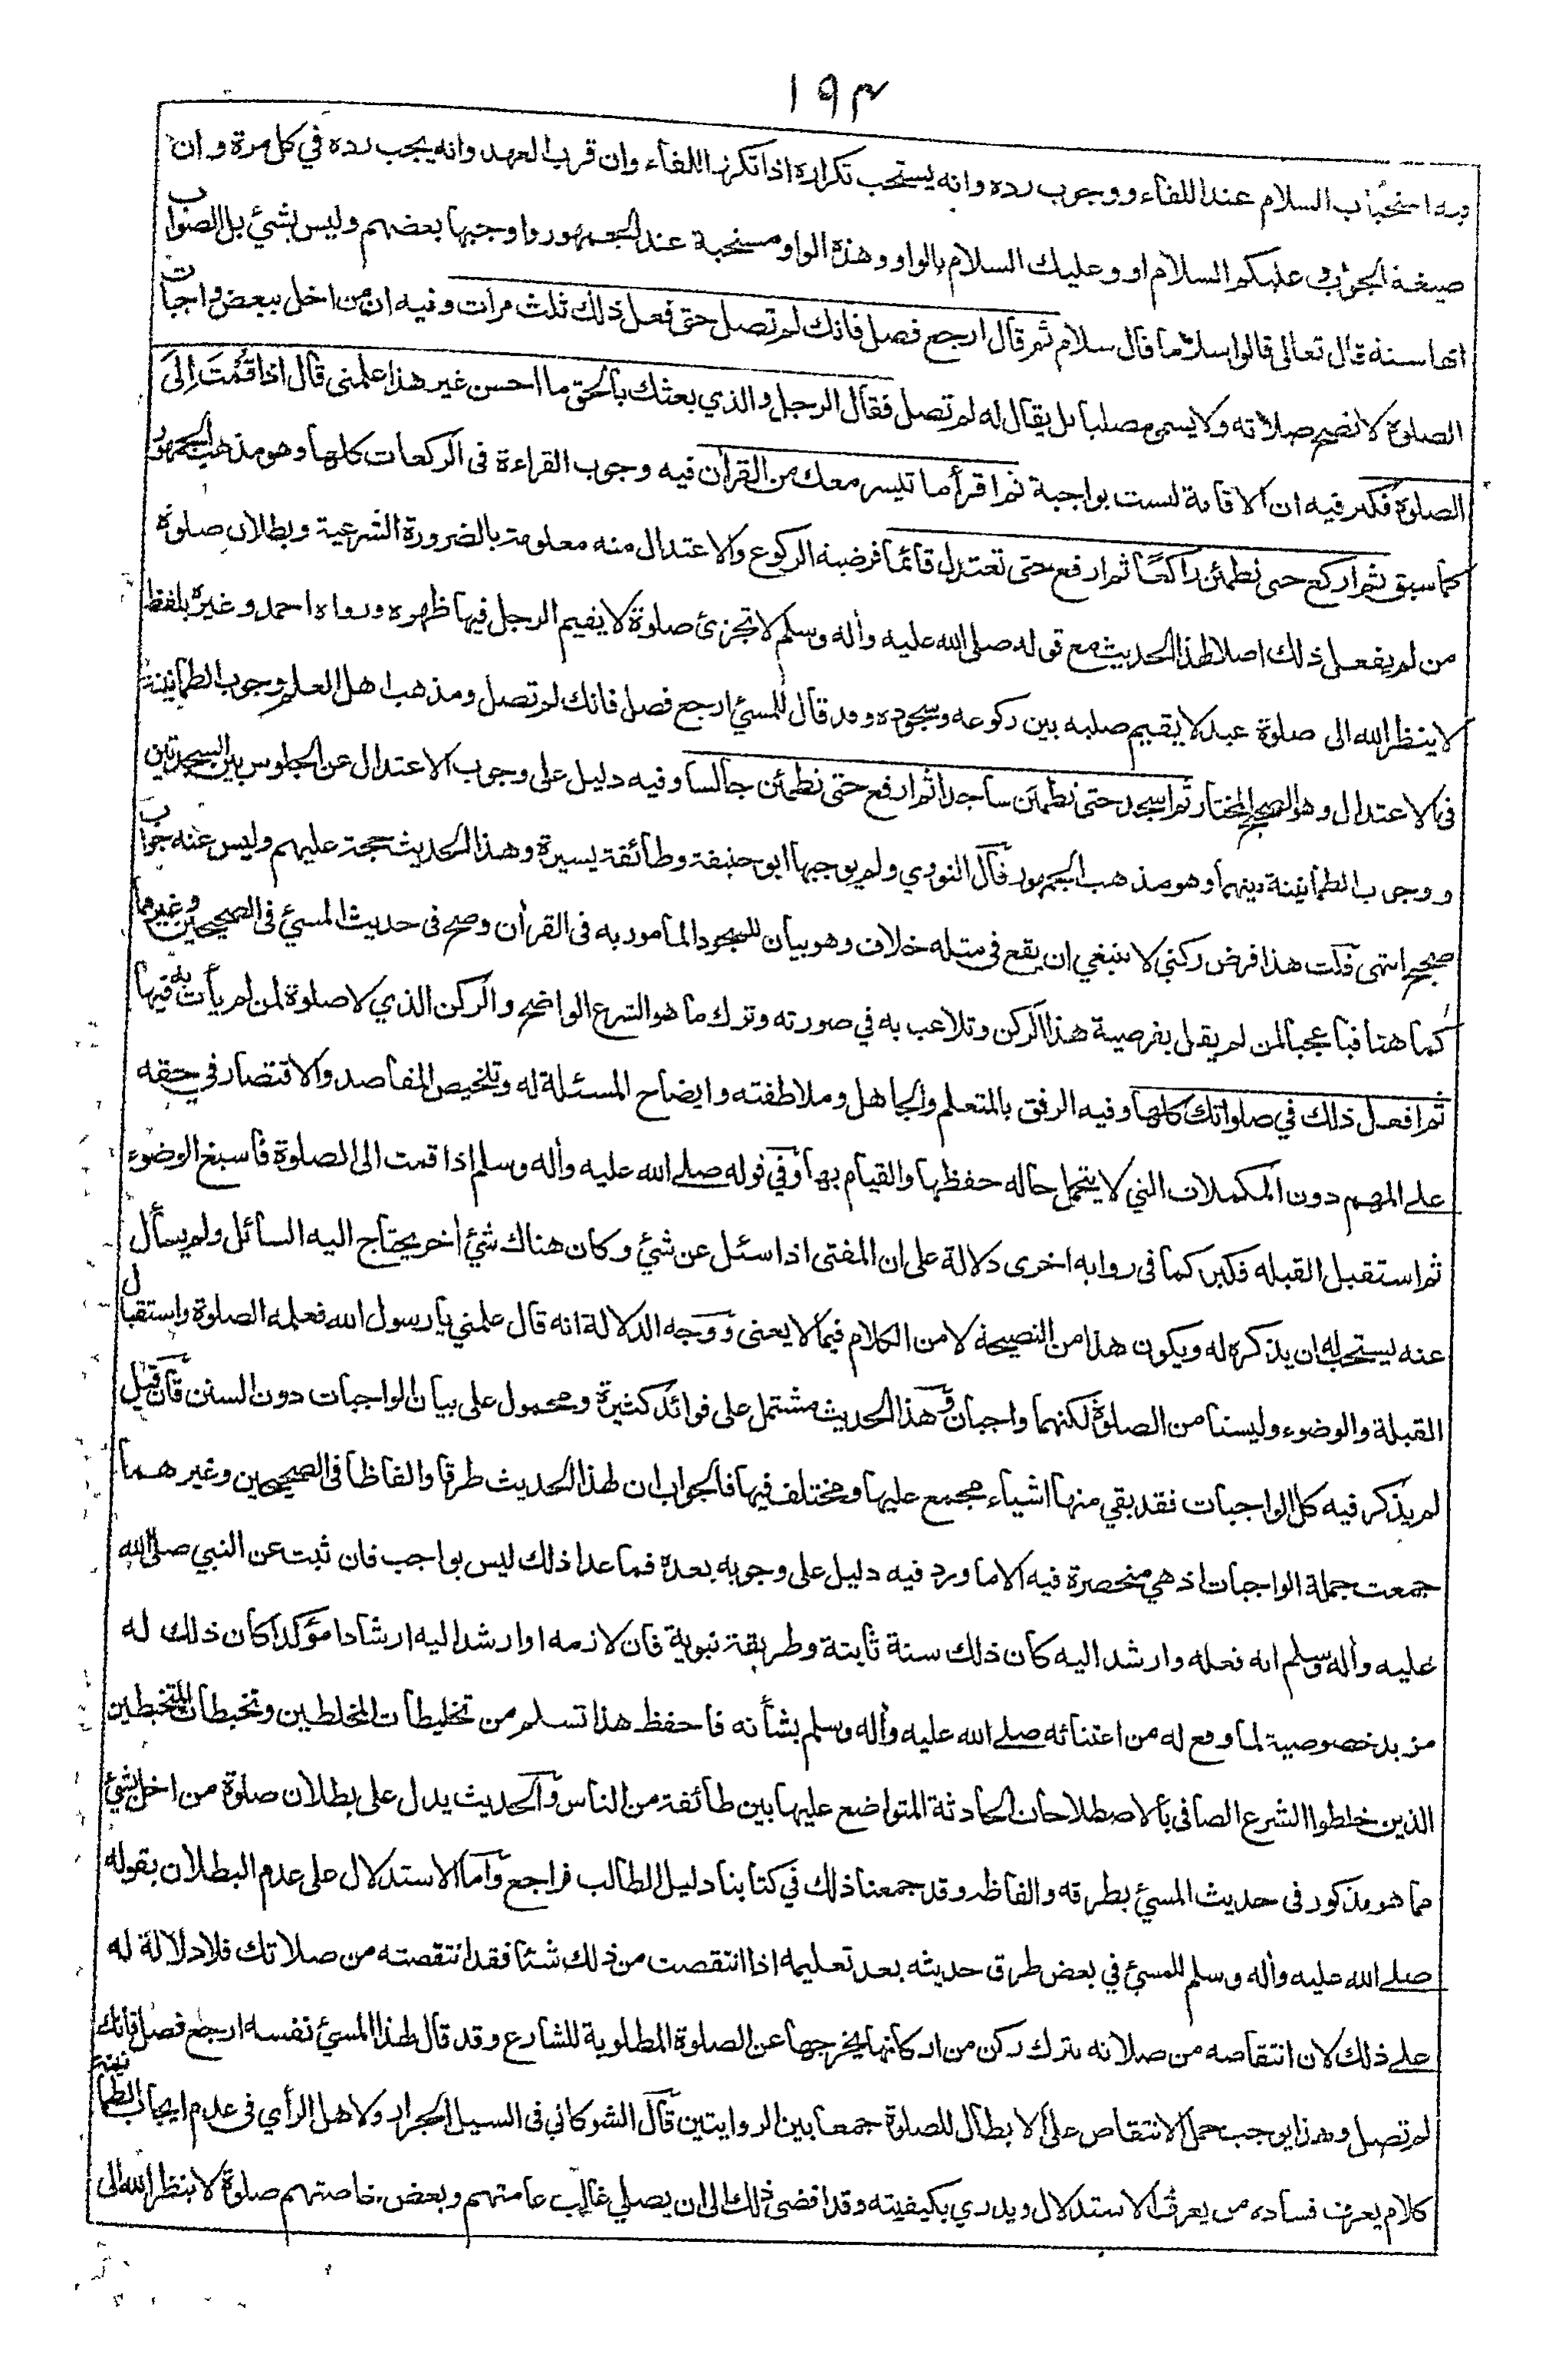 ١٩٣
فيه استحباب السلام عند اللقاء ووجوب رده وانه يستحب تكراره اذا تكرر اللقاء وان قرب العهد وانه يجب رده في كل مرة وان
صيغة الجواب وعليكم السلام او وعليك السلام بالواو وهذه الواو مستحبة عند الجمهور واوجبها بعضهم وليس بشيء بل الصواب
انها سنة قال تعالى قالوا سلاما قال سلام ثم قال ارجع فصل فانك لم تصل حتى فعل ذلك ثلث مرات وفيه ان من اخل ببعض واجبات
الصلوة لا تصح صلاته ولا يسمى مصليا بل يقال له لم تصل فقال الرجل والذي بعثك بالحق ما احسن غير هذا علمنى قال اذا قُمْتَ إلَى
الصلوة فكبر فيه ان الاقامة ليست بواجبة ثم اقرأ ما تيسر معك من القرآن فيه وجوب القراءة فى الركعات كلها وهو مذهب الجمهور
كما سبق ثم اركع حتى تطمئن راكعًا ثم ارفع حتى تعتدل قائما فرضية الركوع والاعتدال منه معلومة بالضرورة الشرعية وبطلان صلوة
من لم يفعل ذلك اصلا لهذا الحديث مع قوله صلى الله عليه وأله وسلم لا تجزئ صلوة لا يقيم الرجل فيها ظهره ورواه احمد وغيره بلفظ
لا ينظر الله الى صلوة عبد لا يقيم صلبه بين ركوعه وسجوده وقد قال للمسئ ارجع فصل فانك لم تصل ومذهب اهل العلم وجوب الطمانينة
فى الاعتدال وهو الصحيح المختار ثم اسجد حتى تطمئن ساجدا ثم ارفع حتى تطمئن جالسا وفيه دليل على وجوب الاعتدال عن الجلوس بين السجدتين
ووجوب الطمانينة فيهما وهو مذهب الجمهور قال النووي ولم يوجبها ابو حنيفة وطائفة يسيرة وهذا الحديث حجة عليهم وليس عنه جواب
صحيح انتهى قلت هذا فرض ركني لا ينبغي ان يقع فى مثله خلاف وهو بيان للسجود المأمور به فى القرأن وصح فى حديث المسئ فى الصحيحين وغيرهما
كما هنا فيا عجبا لمن لم يقل بفرضية هذا الركن وتلاعب به في صورته وترك ما هو الشرع الواضح والركن الذي لا صلوة لمن لم يأت به فيها
ثم افعل ذلك في صلواتك كلها وفيه الرفق بالمتعلم والجاهل وملاطفته وايضاح المسئلة له وتلخيص المقاصد والاقتصار في حقه
على المهم دون المكملات التي لا يحتمل حاله حفظها والقيام بها وفي قوله صلے الله عليه وأله وسلم اذا قمت الى الصلوة فاسبغ الوضوء
ثم استقبل القبلة فكبر كما فى رواية اخرى دلالة على ان المفتى اذا سئل عن شئ وكان هناك شئ أخر يحتاج اليه السائل ولم يسأل
عنه يستحب له ان يذكره له ويكون هذا من النصيحة لا من الكلام فيما لا يعنى ووجه الدلالة انه قال علمني يا رسول الله فعلمه الصلوة واستقبال
القبلة والوضوء وليستا من الصلوة لكنهما واجبان وهذا الحديث مشتمل على فوائد كثيرة ومحمول على بيان الواجبات دون السنن فان قيل
لم يذكر فيه كل الواجبات فقد بقي منها اشياء مجمع عليها ومختلف فيها فالجواب ان لهذا الحديث طرقا والفاظا فى الصحيحين وغيرهما
جمعت جملة الواجبات اذ هي منحصرة فيه الا ما ورد فيه دليل على وجوبه بعده فما عدا ذلك ليس بواجب فان ثبت عن النبي صلى الله
عليه وأله وسلم انه فعله وارشد اليه كان ذلك سنة ثابتة وطريقة نبوية فان لازمه او ارشد اليه ارشادا مؤكدا كان ذلك له
مزيد خصوصية لما وقع له من اعتنائه صلے الله عليه وأله وسلم بشأنه فاحفظ هذا تسلم من تخليطات المخلطين وتخبطات المتخبطين
الذين خلطوا الشرع الصافى بالاصطلاحات الحادثة المتواضع عليها بين طائفة من الناس والحديث يدل على بطلان صلوة من اخل بشئ
مما هو مذكور فى حديث المسئ بطرقه والفاظه وقد جمعنا ذلك في كتابنا دليل الطالب فراجع واما الاستدلال على عدم البطلان بقوله
صلے الله عليه وأله وسلم للمسئ في بعض طرق حديثه بعد تعليمه اذا انتقصت من ذلك شئا فقد انتقصته من صلاتك فلا دلالة له
علے ذلك لان انتقاصه من صلاته بترك ركن من اركانها يخرجها عن الصلوة المطلوبة للشارع وقد قال لهذا المسئ نفسه ارجع فصل فانك
لم تصل وهذا يوجب حمل الانتقاص على الابطال للصلوة جمعا بين الروايتين قال الشوكاني فى السيل الجرار ولاهل الرأي فى عدم ايجاب الطمانينة
كلام يعرف فساده من يعرف الاستدلال ويدري بكيفيته وقد افضى ذلك الى ان يصلي غالب عامتهم وبعض خاصتهم صلوة لا ينظر الله الى